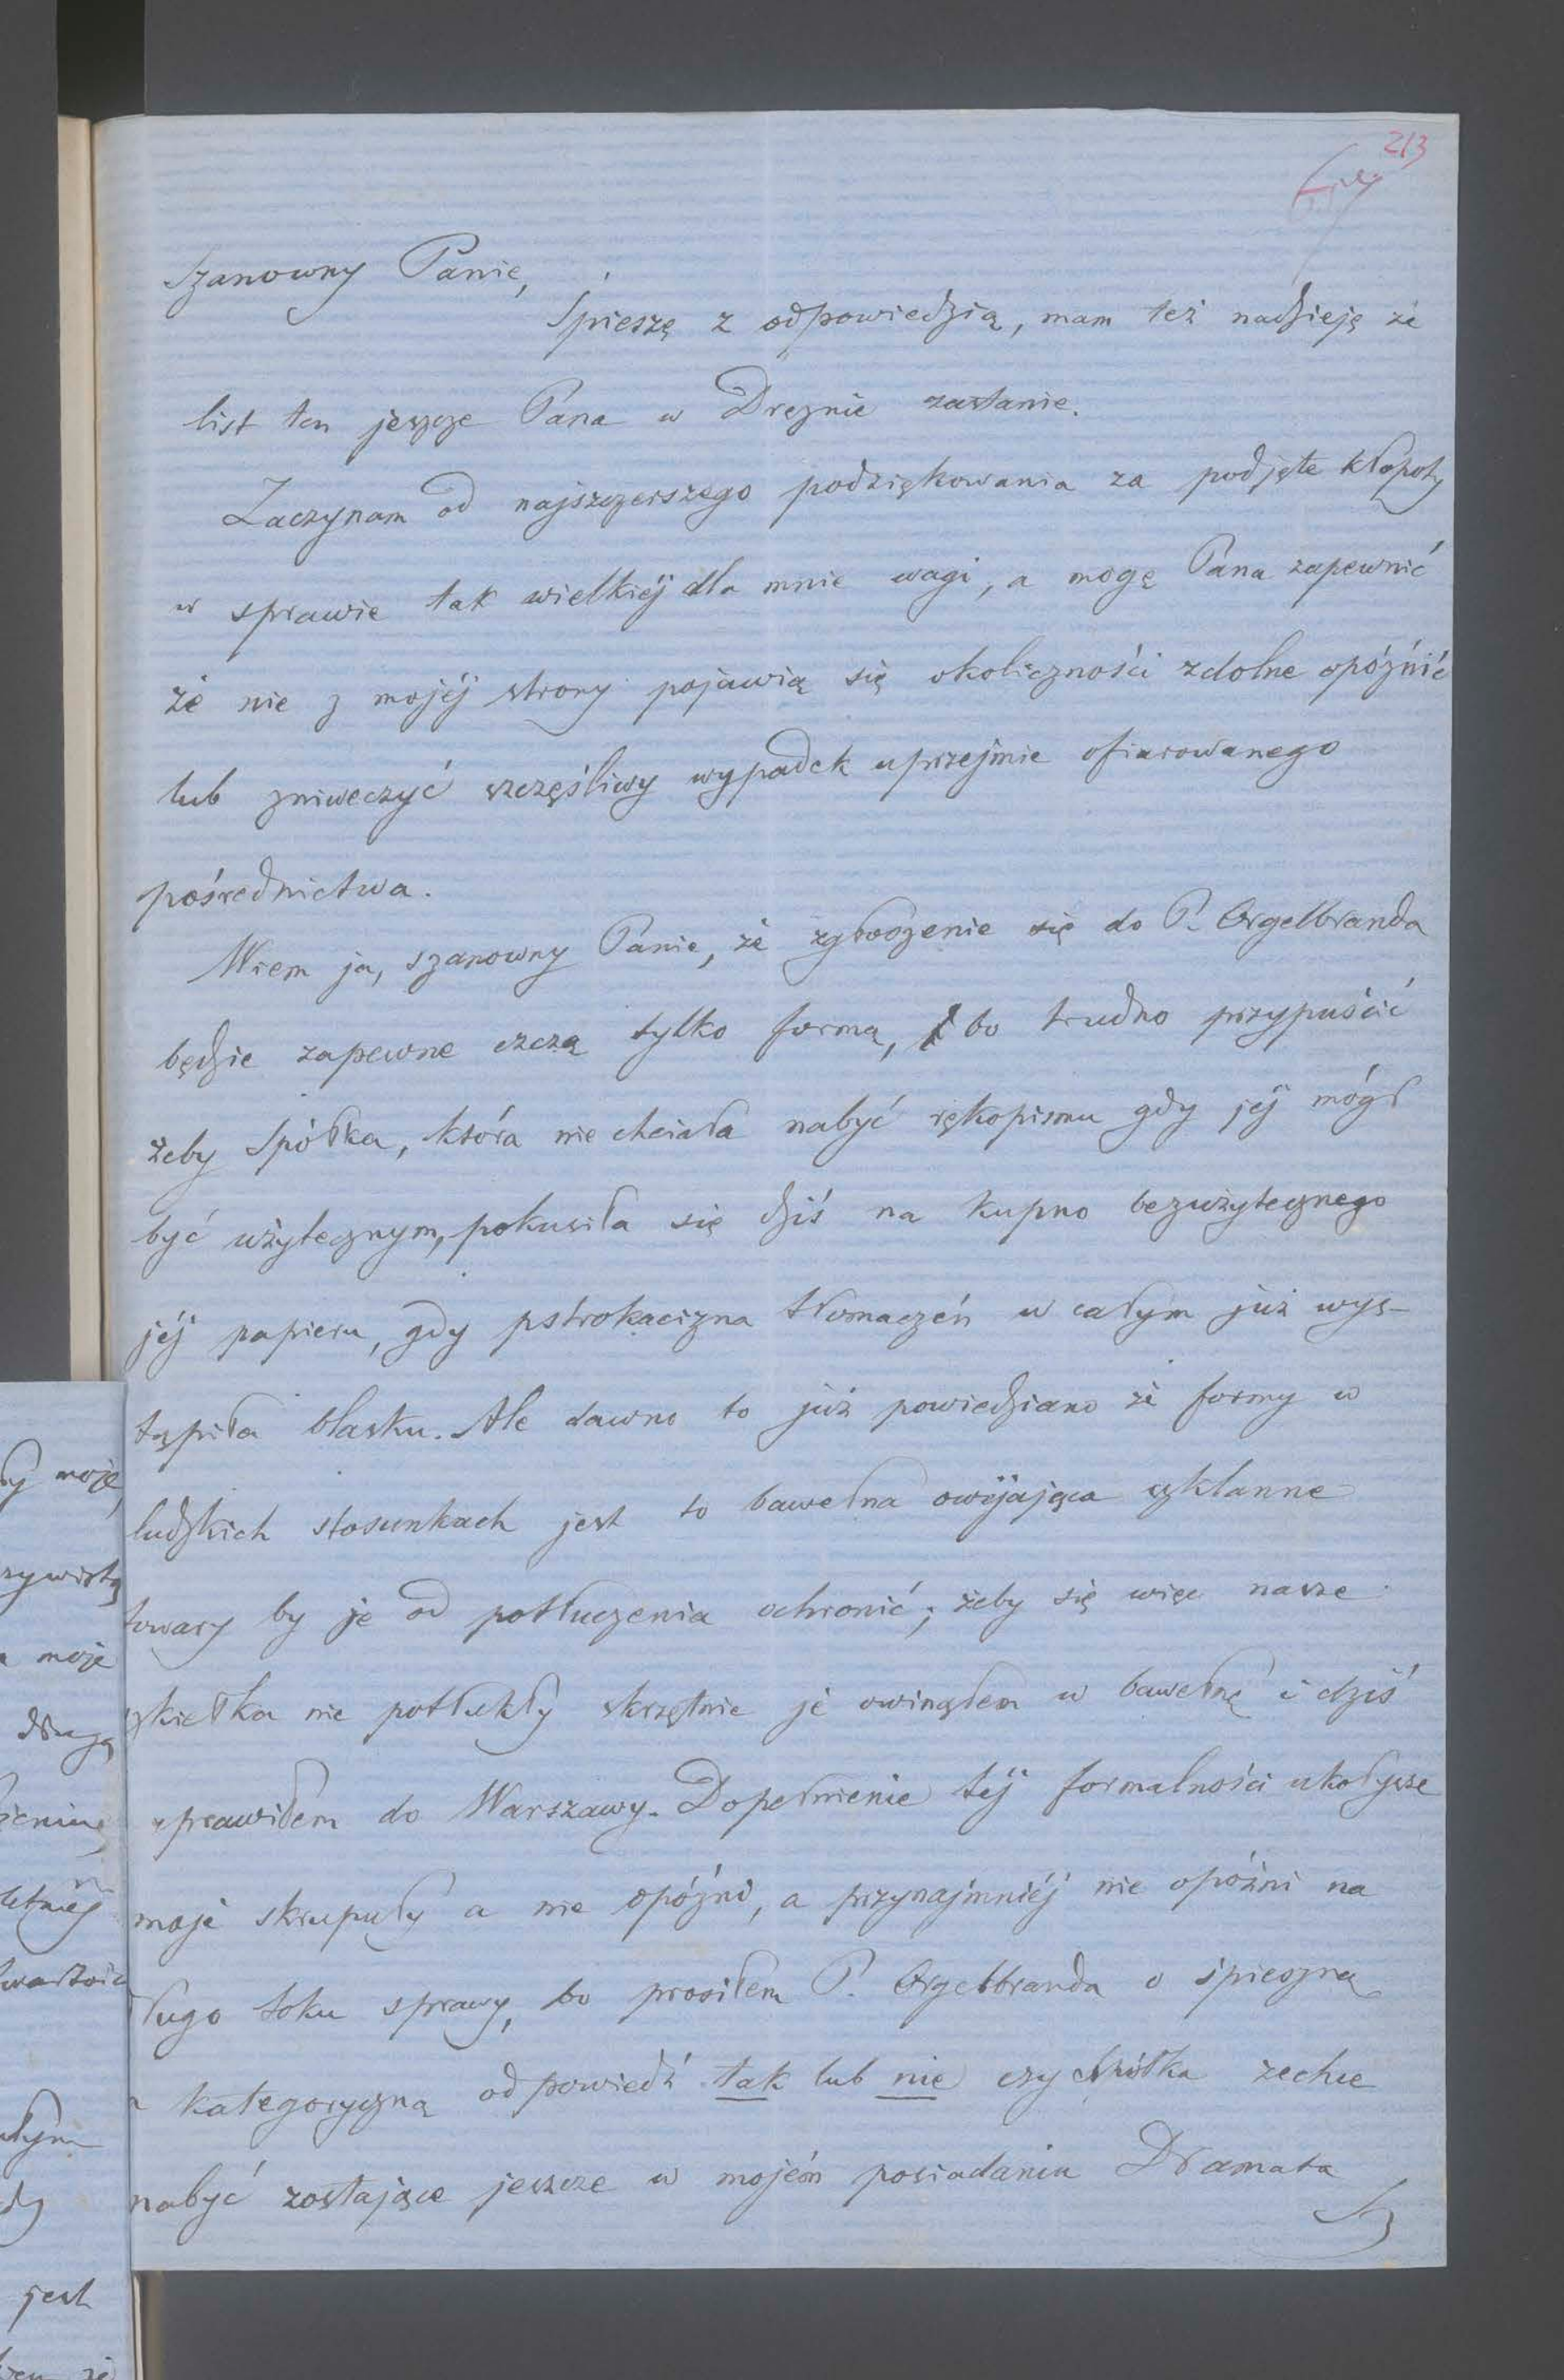 213
Szanowny Panie,
Śpieszę z odpowiedzią, mam też nadzieję że
list ten jeszcze Pana w Dreznie zastanie.
Zaczynam od najszczerszego podziękowania za podjęte kłopoty
w sprawie tak wielkiéj dla mnie wagi, a mogę Pana zapewnić
że nie z mojéj strony pojawią się okoliczności zdolne opóźnić
lub zniweczyć szczęśliwy wypadek uprzejmie ofiarowanego
pośrednictwa.
Wiem ja, szanowny Panie, że zgłoszenie się do P. Orgelbranda
będzie zapewne czczą tylko formą, bo trudno przypuścić
żeby Spółka, która nie chciała nabyć rękopismu gdy jéj mógł
być użytecznym, pokusiła się dziś na kupno bezużytecznego
jéj papieru, gdy pstrokacizna tłomaczeń w całym już wys-
tąpiła blasku. Ale dawno to już powiedziano że formy w
ludzkich stosunkach jest to bawełna owijająca szklanne
towary by je od potłuczenia ochronić; żeby się więc nasze
szkiełka nie potłukły skrzętnie je owinąłem w bawełnę i dziś
wprawiłem do Warszawy. Dopełnienie téj formalności ukołysze
moje skrupuły a nie opóźni, a przynajmniéj nie opóźni na
długo toku sprawy, bo prosiłem P. Orgelbranda o śpieszną
a kategoryczną odpowiedź tak lub nie czy Spółka zechce
nabyć zostające jeszcze w mojém posiadaniu Dramata
moje
moje
drugą
jest
że